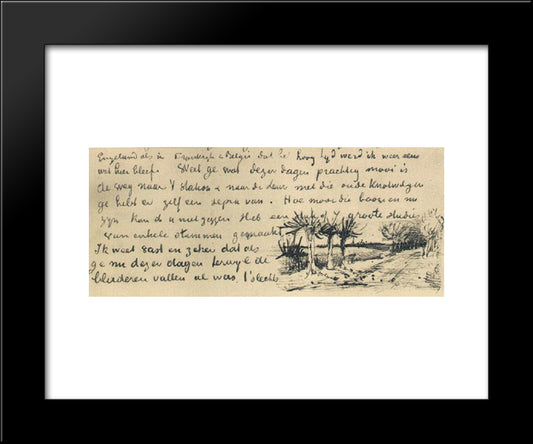 Engeland als in Frankrijk & Belgie dat ik
wat hier bleef. Weet ge wat dezer dagen prachtig mooi is
de weg naar 't station & naar de deur met die oude knotwilgen
ge hebt er zelf een sepia van. Hoe mooi die boomen nu
zijn kan ik u niet zeggen Heb een groote studies
van enkele stammen gemaakt
Ik weet vast en zeker dat als
ge nu dezer dagen terwijl de
bladeren vallen al was 't slechts